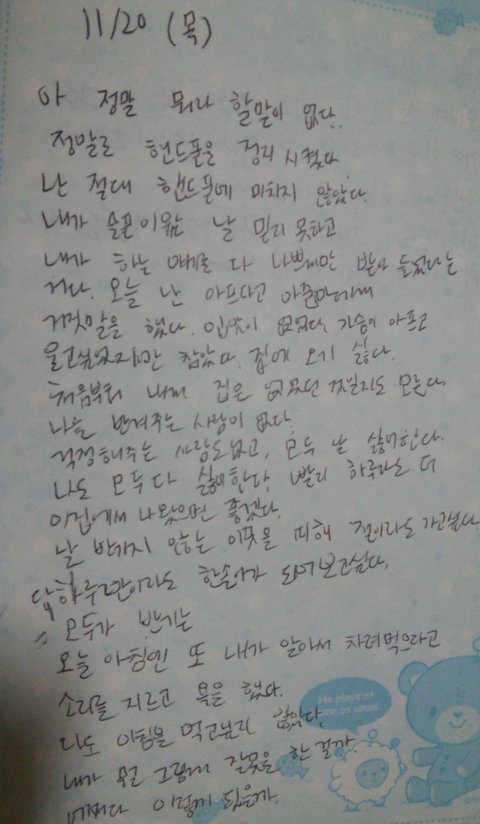 11/20 (목)
아 정말 뭐라 할말이 없다.
정말로 핸드폰을 정지 시켰다
난 절대 핸드폰에 미치지 않았다.
내가 슬픈이유는 날 믿지 못하고
내가 하는 얘기를 다 나쁘게만 받아 들였다는
거다. 오늘 난 아프다고 아줌마에게
거짓말을 했다. 입맛이 없었다, 가슴이 아프고
울고싶었지만 참았다. 집에 오기 싫다.
처음부터 내게 집은 없었던 것일지도 모른다
나를 반겨주는 사람이 없다.
걱정해주는 사람도없고, 모두 날 싫어한다.
나도 모두 다 싫어한다, 빨리 하루라도 더
이집에서 나왔으면 좋겠다.
날 반기지 않는 이곳을 피해 절이라도 가고싶다.
단 하루만이라도 한솔이가 되어보고싶다,
모두가 반기는
오늘 아침엔 또 내가 알아서 차려먹으라고
소리를 지르고 욕을 했다.
나도 아침을 먹고싶지 않았다,
내가 무슨 그렇게 잘못을 한 걸까
어쩌다 이렇게 되었을까.
He plays at
me as usual